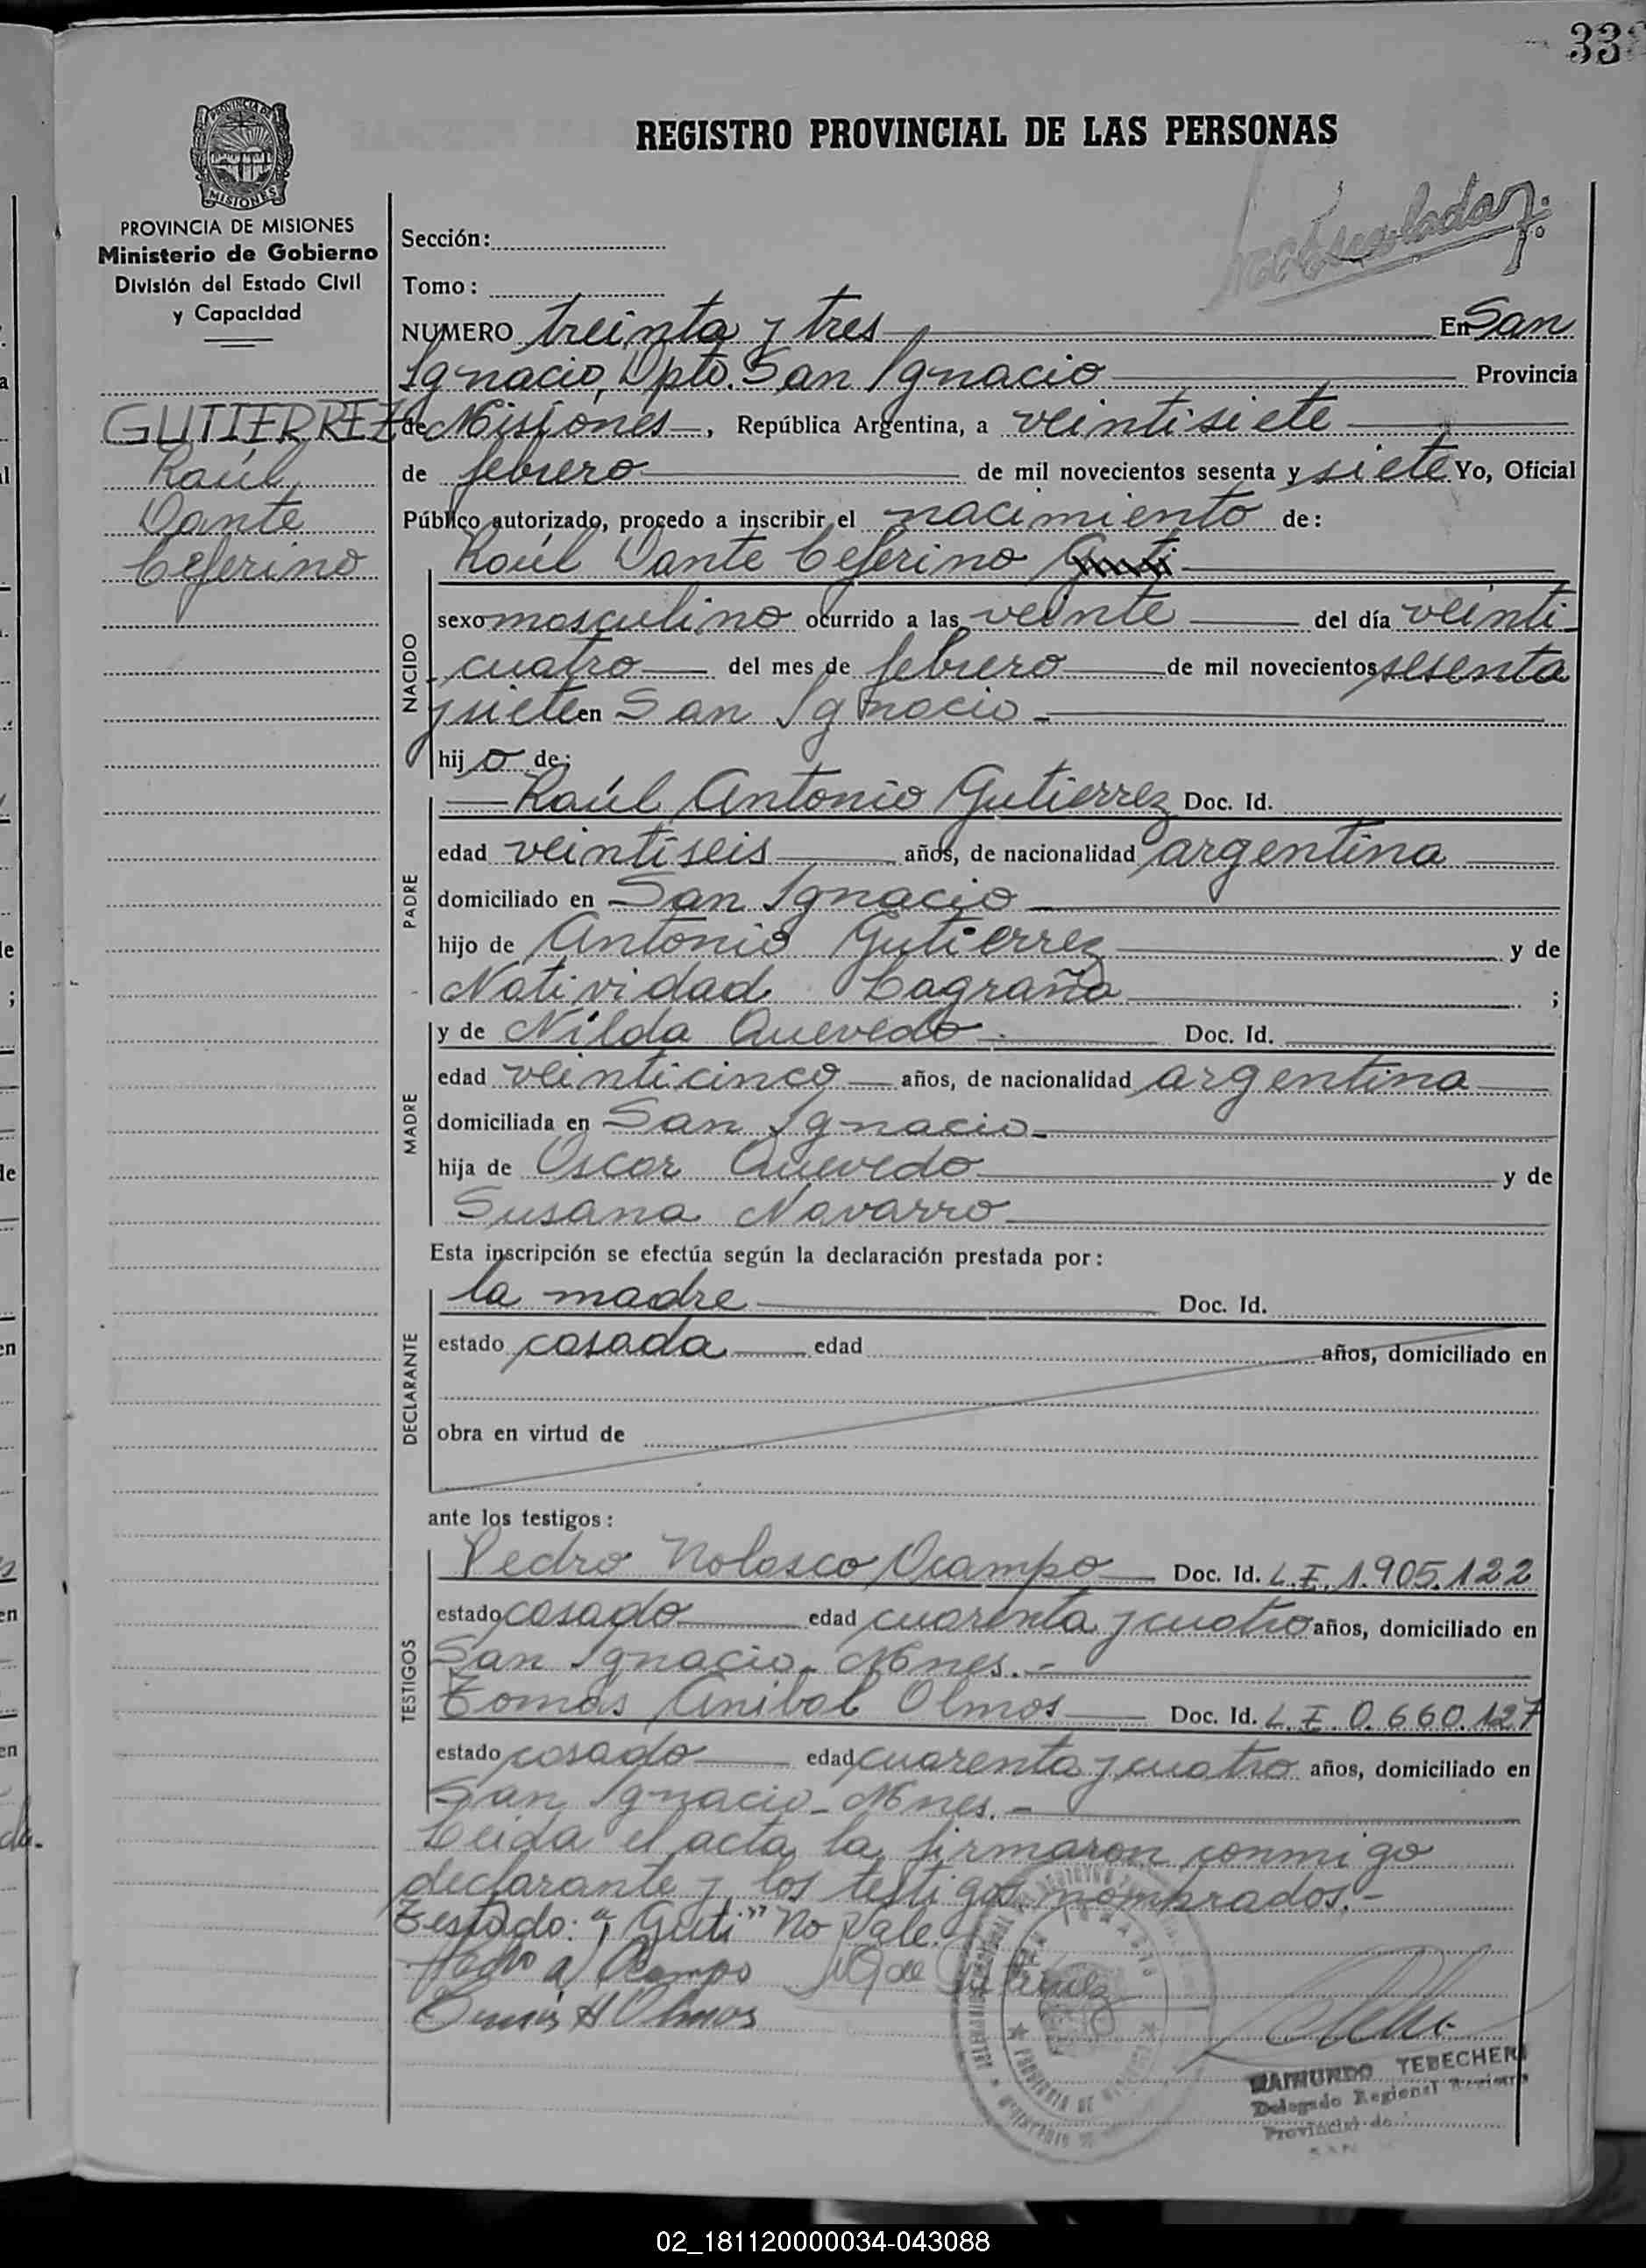 33
REGISTRO PROVINCIAL DE LAS PERSONAS
MISIONES
PROVINCIA DE MISIONES
Ministerio de Gobierno
División del Estado Civil
y Capacidad
GUTIERREZ
Raúl
Dante
Ceferino
Sección:
Tomo:
NUMERO treinta y tres En San
Ignacio, Dpto. San Ignacio Provincia
de Misiones, República Argentina, a veintisiete
de febrero de mil novecientos sesenta y siete Yo, Oficial
Público autorizado, procedo a inscribir el nacimiento de:
Raúl Dante Ceferino Guti
NACIDO
sexo masculino ocurrido a las veinte del día veinti-
cuatro del mes de febrero de mil novecientos sesenta
y siete en San Ignacio
hijo de:
PADRE
Raúl Antonio Gutierrez Doc. Id.
edad veintiseis años, de nacionalidad argentina
domiciliado en San Ignacio
hijo de Antonio Gutierrez y de
Natividad Cagraña ;
MADRE
y de Nilda Quevedo Doc. Id.
edad veinticinco años, de nacionalidad argentina
domiciliada en San Ignacio
hija de Oscar Quevedo y de
Susana Navarro
Esta inscripción se efectúa según la declaración prestada por:
DECLARANTE
la madre Doc. Id.
estado casada edad años, domiciliado en
obra en virtud de
ante los testigos:
TESTIGOS
Pedro Nolasco Ocampo Doc. Id. L.E. 1.905.122
estado casado edad cuarenta y cuatro años, domiciliado en
San Ignacio - Mnes. -
Tomás Anibal Olmos Doc. Id. L.E. 0.660.127
estado casado edad cuarenta y cuatro años, domiciliado en
San Ignacio - Mnes. -
Leida el acta la firmaron conmigo
declarante y los testigos nombrados. -
Testado: "Guti" No Vale.
Ocampo
Olmos
RAIMUNDO TEBECHERI
Delegado Regional Registro
Provincial de
02_181120000034-043088